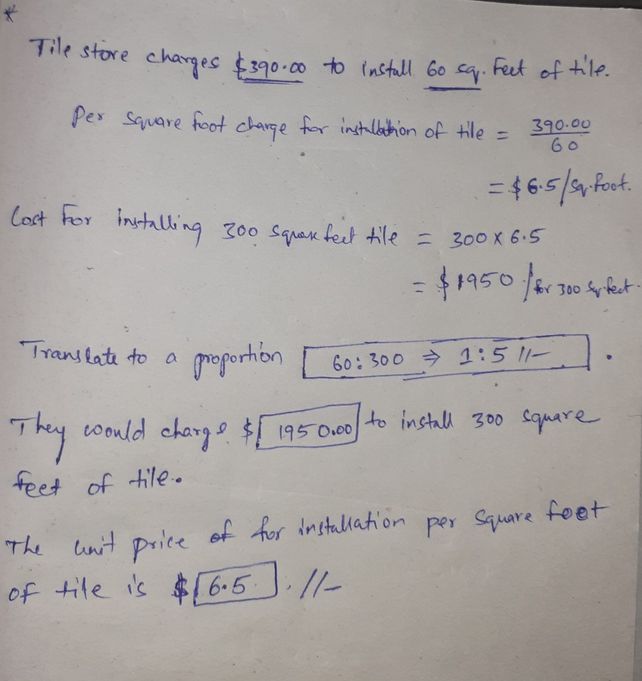 *
Tile store charges $390.00 to install 60 sq. Feet of tile.
Per square foot charge for installation of tile = 390.00 / 60
= $6.5/sq. foot.
Cost For installing 300 square feet tile = 300 x 6.5
= $1950 / for 300 sq. feet.
Translate to a proportion 60:300 ⇒ 1:5 //- .
They would charge $ 1950.00 to install 300 square
feet of tile.
The unit price of for installation per square foot
of tile is $ 6.5 . //-